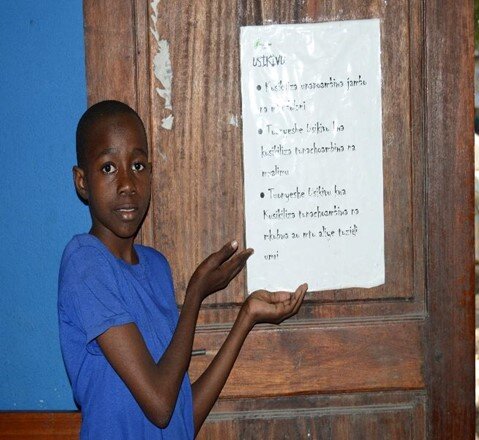 USIKIVU
• Kusikiliza unapoambiwa jambo
na
• Tuonyeshe Usikivu kwa
kusikiliza tunachoambiwa na
mwalimu
• Tuonyeshe Usikivu kwa
Kusikiliza tunachoambiwa na
mkubwa au mtu aliye tuzidi
umri